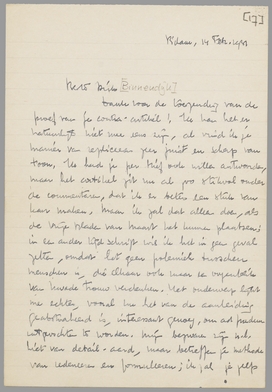 [17]
A'dam, 14 Febr. 19
Beste Dirk [Binnendijk]
Dank voor de toezending van de
proef van je contra-artikel! Ik ben het er
natuurlijk niet mee eens zijn, al vind ik je
manier van repliceeren zeer juist en scherp van
toon. Ik had je per brief ook willen antwoorden,
maar het artikel zit nu al zoo stikvol onder
de commentaren, dat ik er beter een stuk van
kan maken, maar ik zal dat alleen doen, als
de Vrije Bladen van Maart het kunne plaatsen;
in een ander tijdschrift wil ik het in geen geval
zetten, omdat het geen polemiek tusschen
menschen is, die elkaar ook maar in oogenblik
van kwade trouw verdenken. Het onderwerp lijkt
me echter, vooral nu het van de aanleiding
geabstraheerd is, interessant genoeg, om ad fundum
uitgevochten te worden. Mijn bezwaren zijn
niet van detail-aard, maar betreffen je methode
van redeneeren en formuleeren; ik zal je zelfs